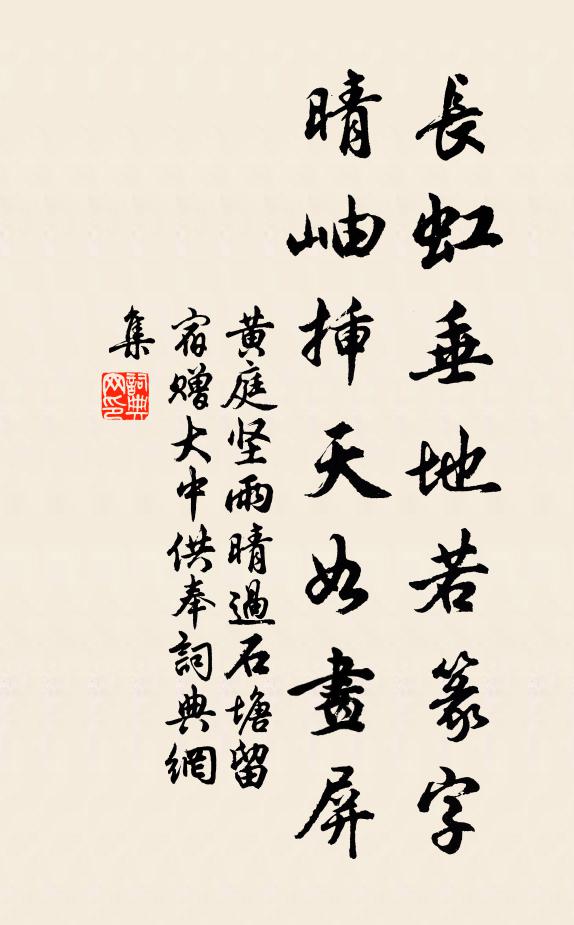 長虹垂地若篆字
晴岫插天如畫屏
黄庭坚雨晴過石塘留
宿贈大中供奉詞典網
集
詞典
网印